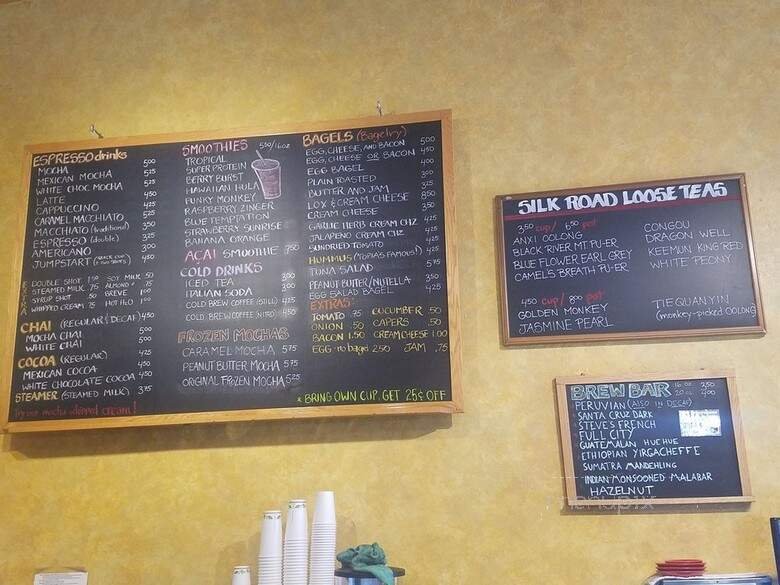 ESPRESSO drinks
MOCHA 500
MEXICAN MOCHA 525
WHITE CHOC MOCHA 525
LATTE 450
CAPPUCCINO 425
CARAMEL MACCHIATO 525
MACCHIATO (traditional) 350
ESPRESSO (double) 325
AMERICANO 300
JUMPSTART 425
EXTRA
DOUBLE SHOT 1.50 SOY MILK .50
STEAMED MILK .75 ALMOND .75
SYRUP SHOT .50 BREVE 1.00
WHIPPED CREAM .75 HOT H2O 1.00
CHAI (REGULAR & DECAF) 450
MOCHA CHAI 500
WHITE CHAI 500
COCOA (REGULAR) 425
MEXICAN COCOA 450
WHITE CHOCOLATE COCOA 450
STEAMER (STEAMED MILK) 375
Try our mocha whipped cream!
SMOOTHIES 550/16oz
TROPICAL
SUPER PROTEIN
BERRY BURST
HAWAIIAN HULA
FUNKY MONKEY
RASPBERRY ZINGER
BLUE TEMPTATION
STRAWBERRY SUNRISE
BANANA ORANGE
AÇAI SMOOTHIE 750
COLD DRINKS
ICED TEA 300
ITALIAN SODA 300
COLD BREW COFFEE (STILL) 425
COLD BREW COFFEE (NITRO) 450
FROZEN MOCHAS
CARAMEL MOCHA 575
PEANUT BUTTER MOCHA 575
ORIGINAL FROZEN MOCHA 525
BAGELS (Bagelry)
EGG, CHEESE, AND BACON 500
EGG, CHEESE OR BACON 450
EGG BAGEL 400
PLAIN TOASTED 300
BUTTER AND JAM 325
LOX & CREAM CHEESE 850
CREAM CHEESE 350
GARLIC HERB CREAM CHZ 425
JALAPENO CREAM CHZ 425
SUNDRIED TOMATO 425
HUMMUS (Yopias Famous!) 425
TUNA SALAD 575
PEANUT BUTTER/NUTELLA 350
EGG SALAD BAGEL 425
EXTRAS:
TOMATO .75 CUCUMBER .50
ONION .50 CAPERS .50
BACON 1.50 CREAM CHEESE 1.00
EGG-no bagel 2.50 JAM .75
* BRING OWN CUP, GET 25¢ OFF
SILK ROAD LOOSE TEAS
350 cup / 650 pot
ANXI OOLONG
BLACK RIVER MT. PU-ER
BLUE FLOWER EARL GREY
CAMEL'S BREATH PU-ER
CONGOU
DRAGON WELL
KEEMUN KING RED
WHITE PEONY
450 cup / 800 pot
GOLDEN MONKEY
JASMINE PEARL
TIEGUANYIN
(monkey-picked OOLONG)
BREW BAR 16 oz 350
20 oz 400
PERUVIAN (ALSO IN DECAF)
SANTA CRUZ DARK
STEVE'S FRENCH
FULL CITY
GUATEMALAN HUEHUE
ETHIOPIAN YIRGACHEFFE
SUMATRA MANDEHLING
INDIAN MONSOONED MALABAR
HAZELNUT
menupix